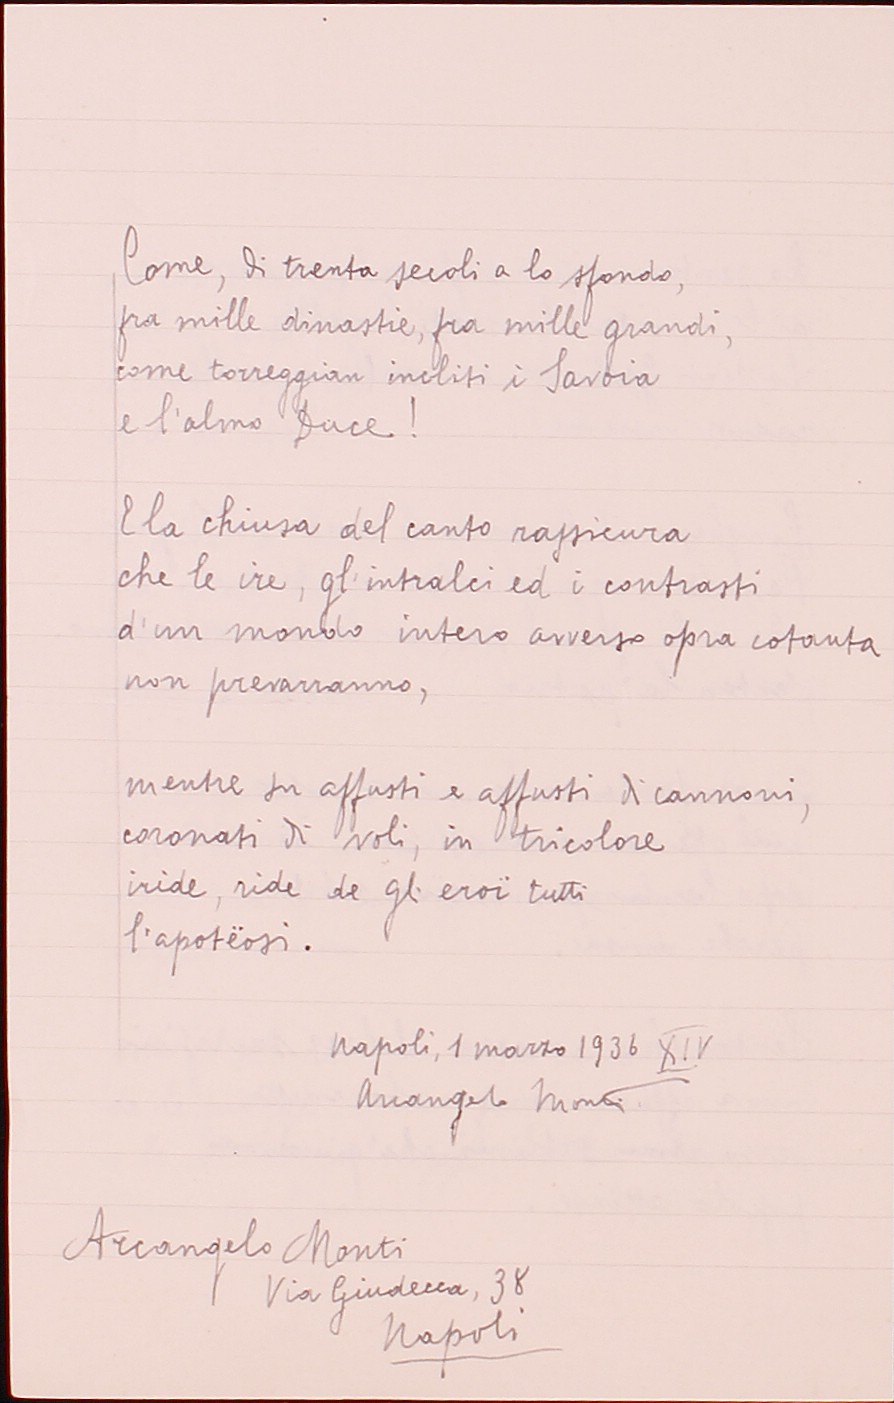 Come, di trenta secoli a lo sfondo,
fra mille dinastie, fra mille grandi,
come torreggian incliti i Savoia
e l'almo Duce!
E la chiusa del canto rassicura
che le ire, gl'intralci ed i contrasti
d'un mondo intero avverso opra cotanta
non prevarranno,
mentre su affusti e affusti di cannoni,
coronati di voli, in tricolore
iride, ride de gli eroï tutti
l'apotëosi.
Napoli, 1 marzo 1936 XIV
Arcangelo Monti
Arcangelo Monti
Via Giudecca, 38
Napoli